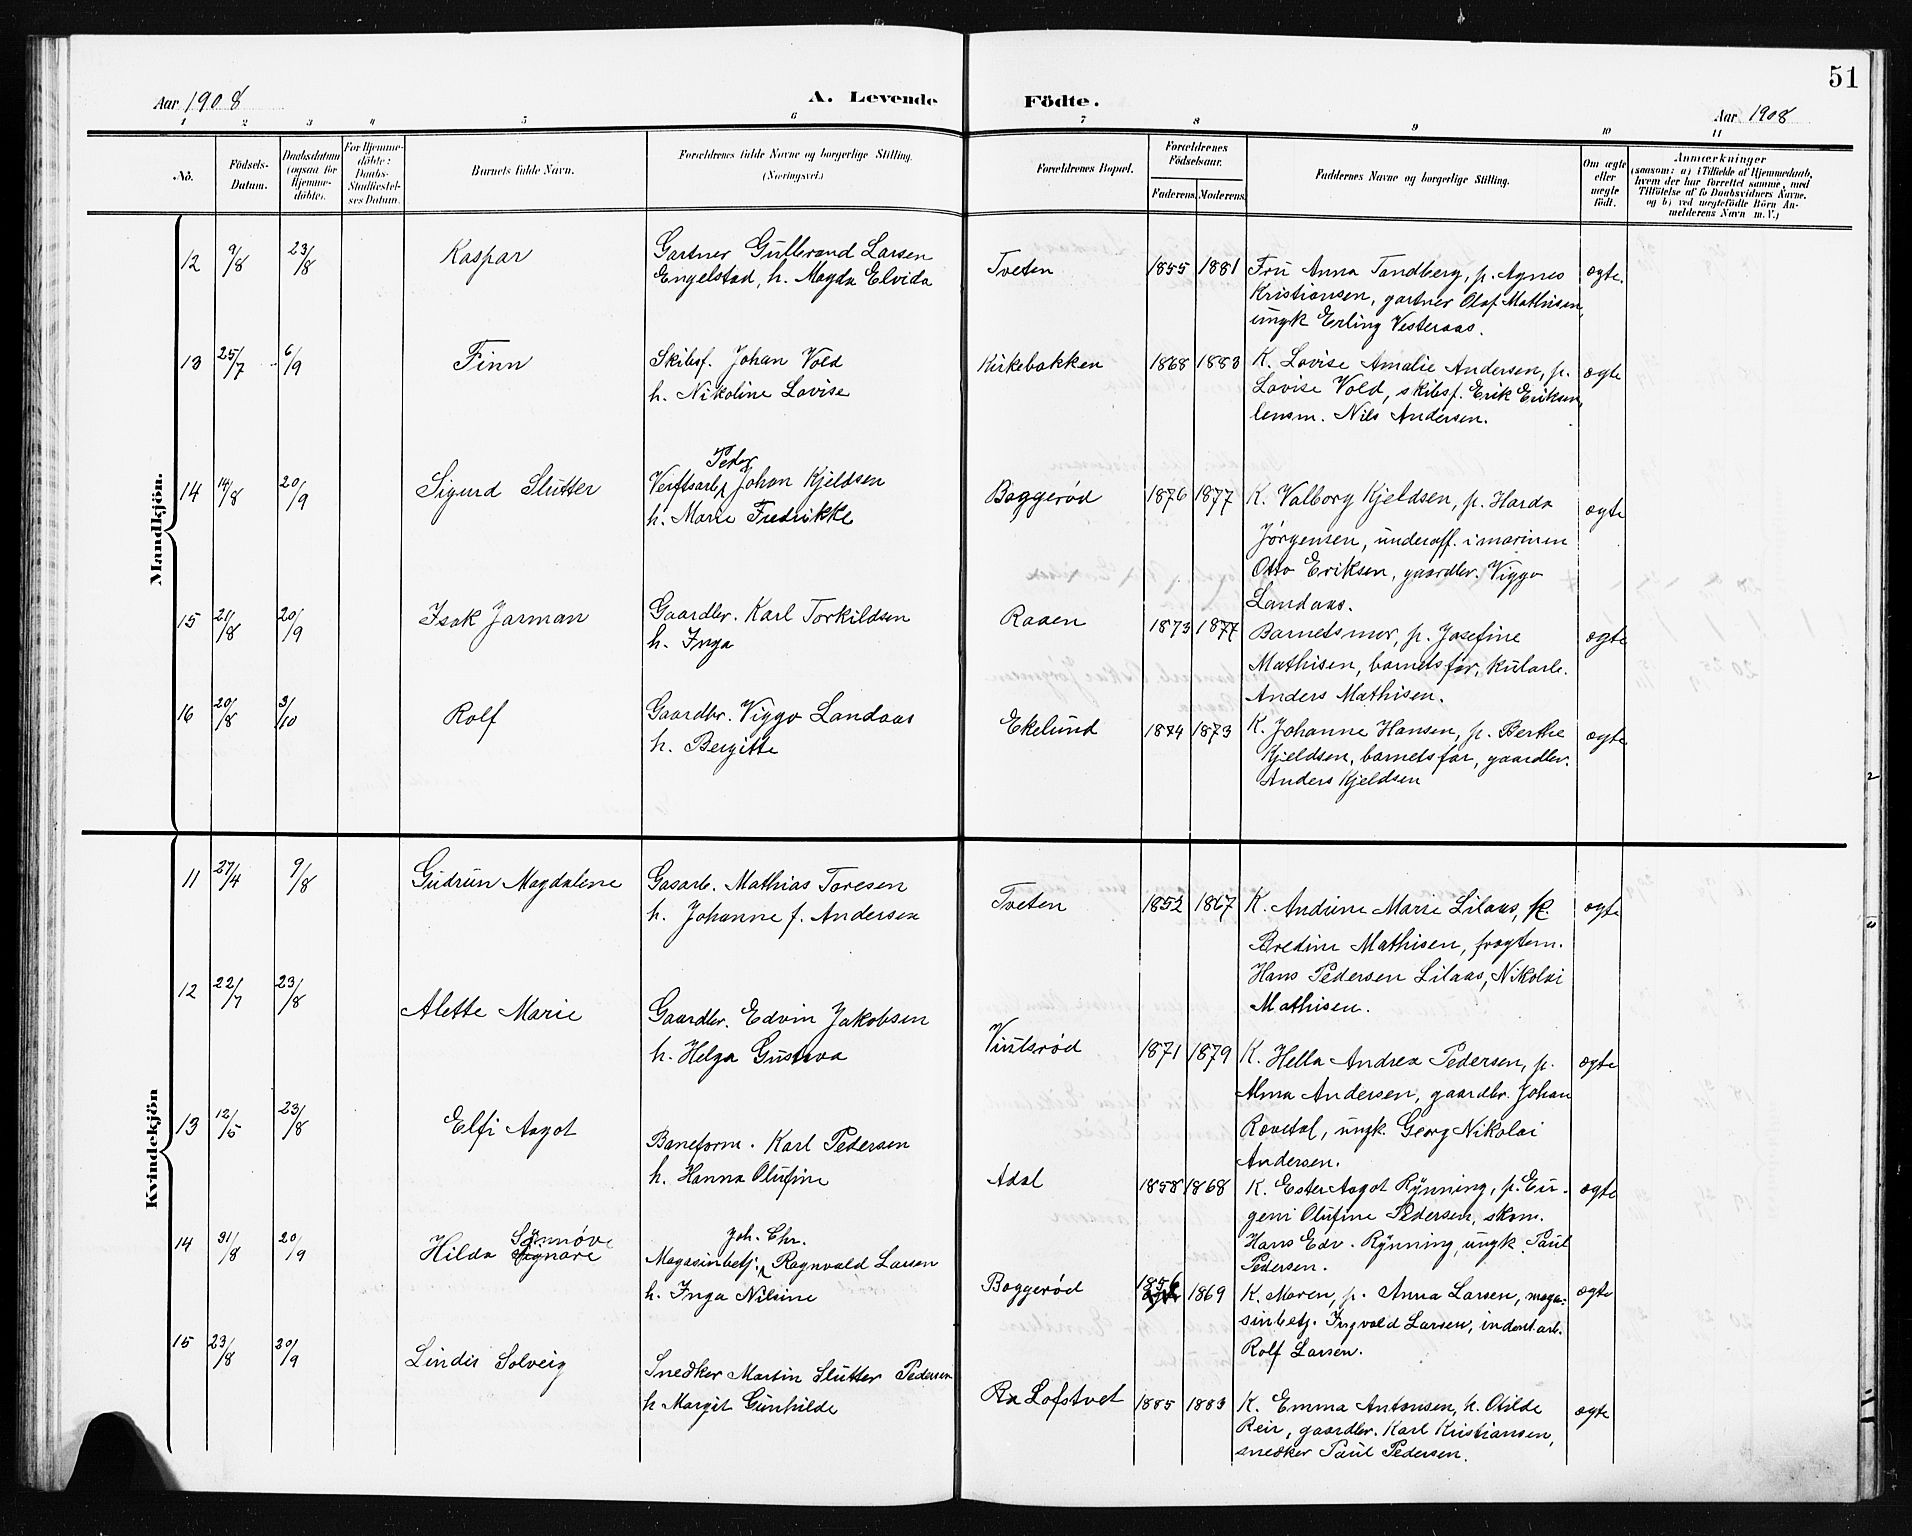 51
Aar 1908 A. Levende Födte. Aar 1908
1 2 3 4 5 6 7 8 9 10 11
No. Födsels-Datum. Daabsdatum (ogsaa for Hjemmedöbte). For Hjemmedöbte: Daabs-Stadfæstelses Datum. Barnets fulde Navn. Forældrenes fulde Navne og borgerlige Stilling. (Næringsvei.) Forældrenes Bopæl. Forældrenes Födselsaar. Faderens. Moderens. Faddernes Navne og borgerlige Stilling. Om ægte eller uægte födt. Anmærkninger (saasom: a) i Tilfælde af Hjemmedaab, hvem der har forrettet samme, med Tilföielse af to Daabsvidners Navne, og b) ved uægtefödte Börn Anmelderens Navn m. V.)
Mandkjön.
12 9/8 23/8 Kaspar Gartner Gulbrand Larsen Tveten 1855 1881 Fru Anna Tandberg, p. Agnes ægte.
Engelstad, h. Magda Elvida Kristiansen, gartner Olaf Mathisen,
ungk Erling Vesteraas.
13 25/7 6/9 Finn Skibsf. Johan Vold Kirkebakken 1868 1883 K. Lovise Amalie Andersen, p. ægte
h. Nikoline Lovise Lovise Vold, skibsf. Erik Eriksen,
lensm. Nils Andersen.
Peder
14 14/8 20/9 Sigurd Slutter Verftsarb. Johan Kjeldsen Baggerød 1876 1877 K. Valborg Kjeldsen, p. Harda ægte
h. Marie Fredrikke Jørgensen, underoff. i marinen
Otto Eriksen, gaardbr. Viggo
Landaas.
15 21/8 20/9 Isak Jarman Gaardbr. Karl Torkildsen Raaen 1873 1877 Barnets mor, p. Josefine ægte
h. Inga Mathisen, barnets far, kularb.
Anders Mathisen.
16 20/8 3/10 Rolf Gaardbr. Viggo Landaas Ekelund 1874 1873 K. Johanne Hansen, p. Berthe ægte
h. Bergitte Kjeldsen, barnets far, gaardbr.
Anders Kjeldsen
Kvindekjön
11 27/4 9/8 Gudrun Magdalene Gasarb. Mathias Toresen Tveten 1852 1867 K. Andrine Marie Lilaas, p. ægte
h. Johanne f. Andersen Bredine Mathisen, fragtem.
Hans Pedersen Lilaas, Nikolai
Mathisen.
12 22/7 23/8 Alette Marie Gaardbr. Edvin Jakobsen Vintsrød 1871 1879 K. Hella Andrea Pedersen, p. ægte
h. Helga Gustava Alma Andersen, gaardbr. Johan
Rævetal, ungk. Georg Nikolai
Andersen.
13 12/5 23/8 Elfi Aagot Baneform. Karl Pedersen Adal 1858 1868 K. Ester Aagot Rynning, p. Eu- ægte
h. Hanna Olufine geni Olufine Pedersen, skom.
Hans Edv. Rynning, ungk. Paul
Pedersen.
Synnøve Joh. Chr.
14 31/8 20/9 Hilda Magasinbetj. Ragnvald Larsen Baggerød 1856 1869 K. Maren, p. Anna Larsen, maga- ægte
h. Inga Nilsine sinbetj. Ingvald Larsen, indent.arb.
Rolf Larsen.
15 23/8 20/9 Lindis Solveig Snedker Martin Slutter Pedersen Ra Lofstvet 1885 1883 K. Emma Antonsen, h. Otilde ægte
h Margit Gunhilde Reir, gaardbr. Karl Kristiansen,
snedker Paul Pedersen.